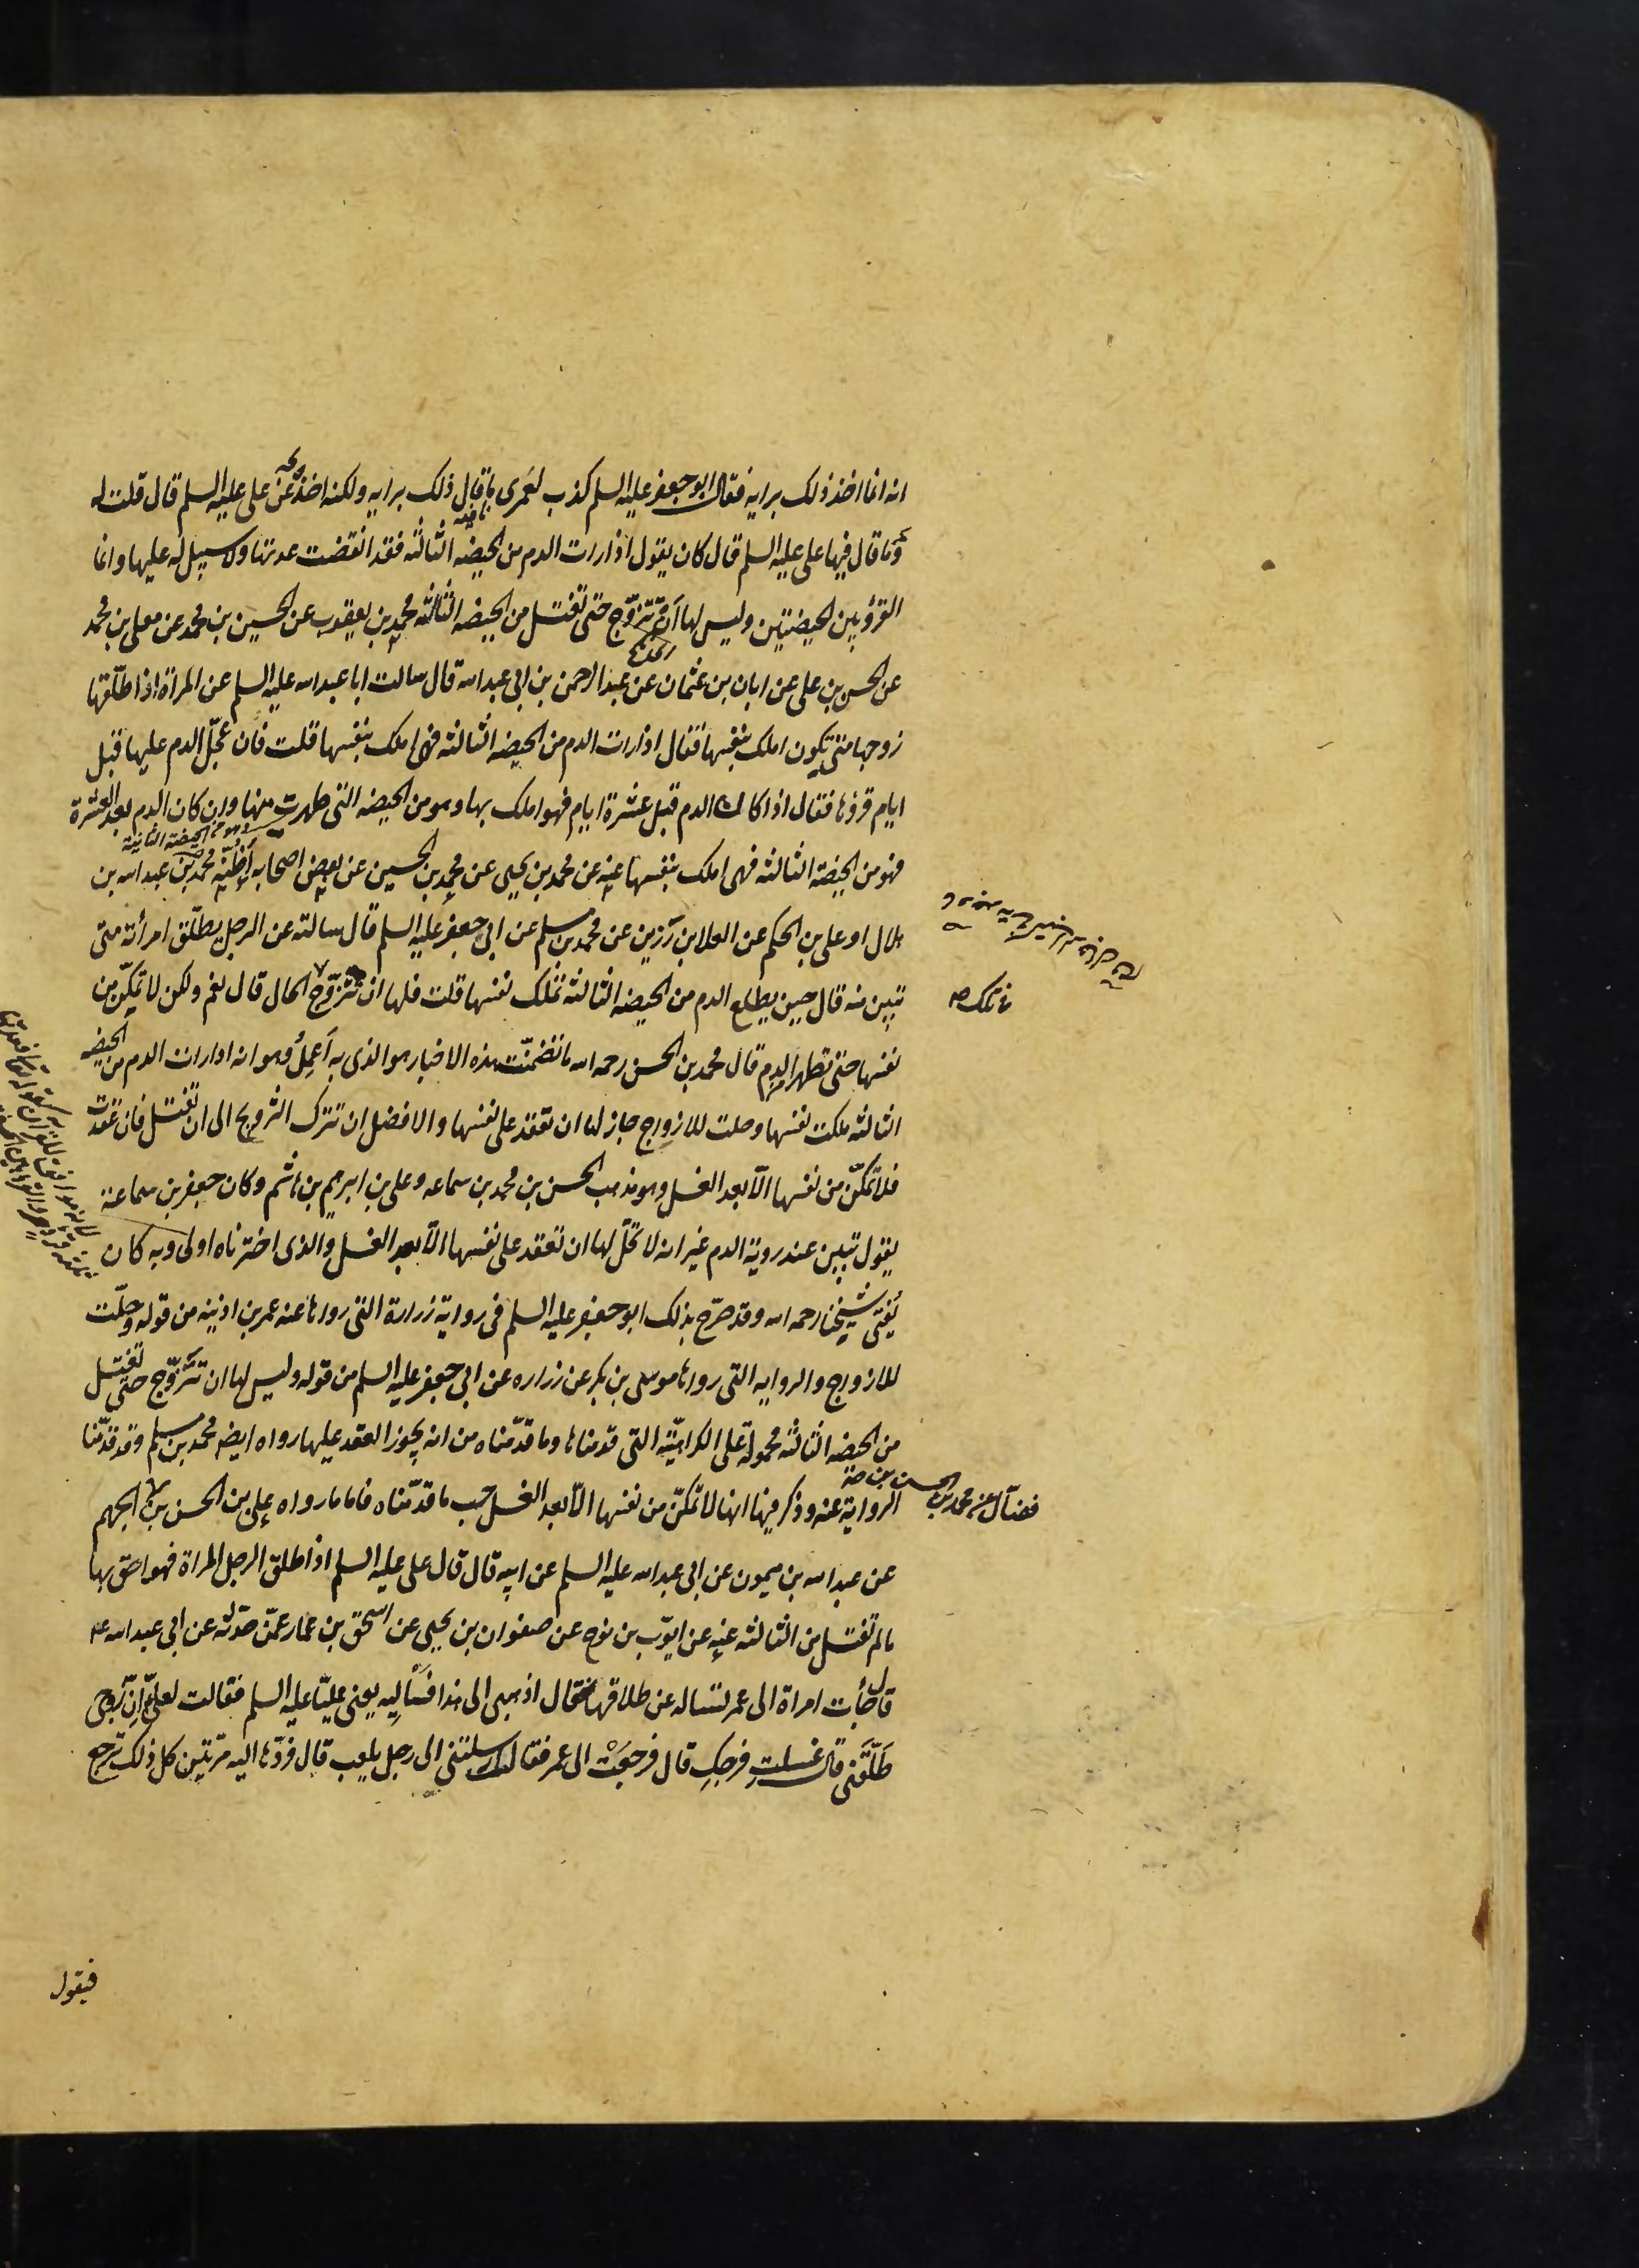 انه انما اخذ ذلك برايه فقال ابو جعفر عليه السلم كذب لعمرى ما قال ذلك برايه ولكنه اخذ عن على عليه السلم قال قلت له
وما قال فيها على عليه السلم قال كان يقول اذا رات الدم من الحيضه الثالثه فقد انقضت عدتها ولا سبيل له عليها وانما
القرؤ بين الحيضتين وليس لها ان تتزوج حتى تغتسل من الحيضه الثالثه محمد بن يعقوب عن الحسين بن محمد عن معلى بن محمد
عن الحسن بن على عن ابان بن عثمان عن عبد الرحمن بن ابى عبد الله قال سالت ابا عبد الله عليه السلم عن المراة اذا طلّقها
زوجها متى تكون املك بنفسها فقال اذا رات الدم من الحيضه الثالثه فهى املك بنفسها قلت فان عجّل الدم عليها قبل
ايام قروها فقال اذا كان الدم قبل عشرة ايام فهو املك بها وهو من الحيضه التى طهرت منها وان كان الدم بعد العشرة
فهو من الحيضة الثالثه فهى املك بنفسها عنه عن محمد بن يحيى عن محمد بن الحسين عن بعض اصحابه اظنّه محمد بن عبد الله بن
هلال او على بن الحكم عن العلا بن رزين عن محمد بن مسلم عن ابى جعفر عليه السلم قال سالته عن الرجل يطلّق امرأته متى
تبين منه قال حين يطلع الدم من الحيضه الثالثه تملك نفسها قلت فلها ان تتزوّج الحال قال نعم ولكن لا تمكّن من
نفسها حتى تطهر الدم قال محمد بن الحسن رحمه الله ما تضمنّت هذه الاخبار هو الذى به أعمل وهو انه اذا رات الدم من الحيضه
الثالثه ملكت نفسها وحلت للازواج جاز لها ان تعقد على نفسها والافضل ان تترك التزويج الى ان تغتسل فان عقدت
فلا تمكّن من نفسها الّا بعد الغسل وهو مذهب الحسن بن محمد بن سماعه وعلى بن ابرهيم بن هاشم وكان جعفر بن سماعة
يقول تبين عند روية الدم غير انه لا تحلّ لها ان تعقد على نفسها الّا بعد الغسل والذى اخترناه اولى وبه كان
يُفتى شيخنا رحمه الله وقد صرّح بذلك ابو جعفر عليه السلم فى رواية زرارة التى رواها عنه عمر بن اذينه من قوله وحلّت
للازواج والروايه التى رواها موسى بن بكر عن زراره عن ابى جعفر عليه السلم من قوله وليس لها ان تتزوّج حتى تغتسل
من الحيضه الثالثه محمولة على الكراهيّة التى قدمناها وما قدّمناه من انه يجوز العقد عليها رواه ايضه محمد بن مسلم وقد قدّمنا
الرواية عنه وذكر فيها انها لا تمكّن من نفسها الّا بعد الغسل حسب ما قدّمناه فاما ما رواه على بن الحسن بن الجهم
فضآل عن محمد بن الحسن بن
عن عبد الله بن ميمون عن ابى عبد الله عليه السلم عن ابيه قال قال على عليه السلم اذا طلق الرجل المراة فهو احق بها
ما لم تغتسل من الثالثه عنه عن ايوّب بن نوح عن صفوان بن يحيى عن اسحق بن عمار عمّن حدّثه عن ابى عبد الله عه
قال جأت امراة الى عمر تساله عن طلاقها فقال اذهبى الى هذا فسَأليه يعنى عليّا عليه السلم فقالت لعلىّ انّ زوجى
طَلّقَنى قال غسلتِ فرجكِ قال فرجعَتْ الى عمر فقالت ارسلتنى الى رجل يلعب قال فردّها اليه مرّتين كل ذلك ترجع
فيقول